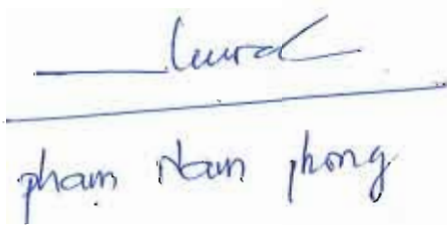 phạm Nam phong